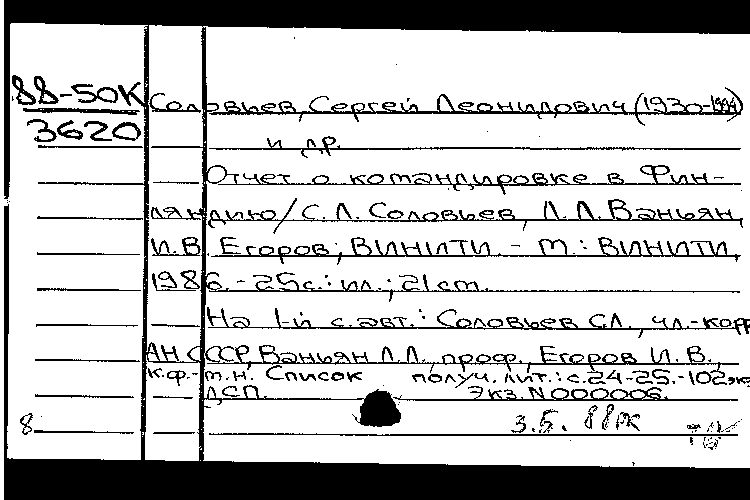 88-50К
3620
Соловьев, Сергей Леонидович (1930-1994)
и др.
Отчет о командировке в Фин-
ляндию / С. Л. Соловьев, Л. Л. Ваньян,
И. В. Егоров; ВИНИТИ. - М.: ВИНИТИ,
1986. - 25 с.: ил.; 21 см.
На 1-й с. авт.: Соловьев С.Л., чл.-корр
АН СССР, Ваньян Л. Л., проф., Егоров И. В.,
к.ф.-м.н. Список получ. лит.: с. 24-25. - 102 эк
ДСП. Экз. N 000006.
8 3.5. 88